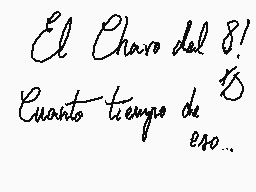 El Chavo del 8!
Cuanto tiempo de
eso...